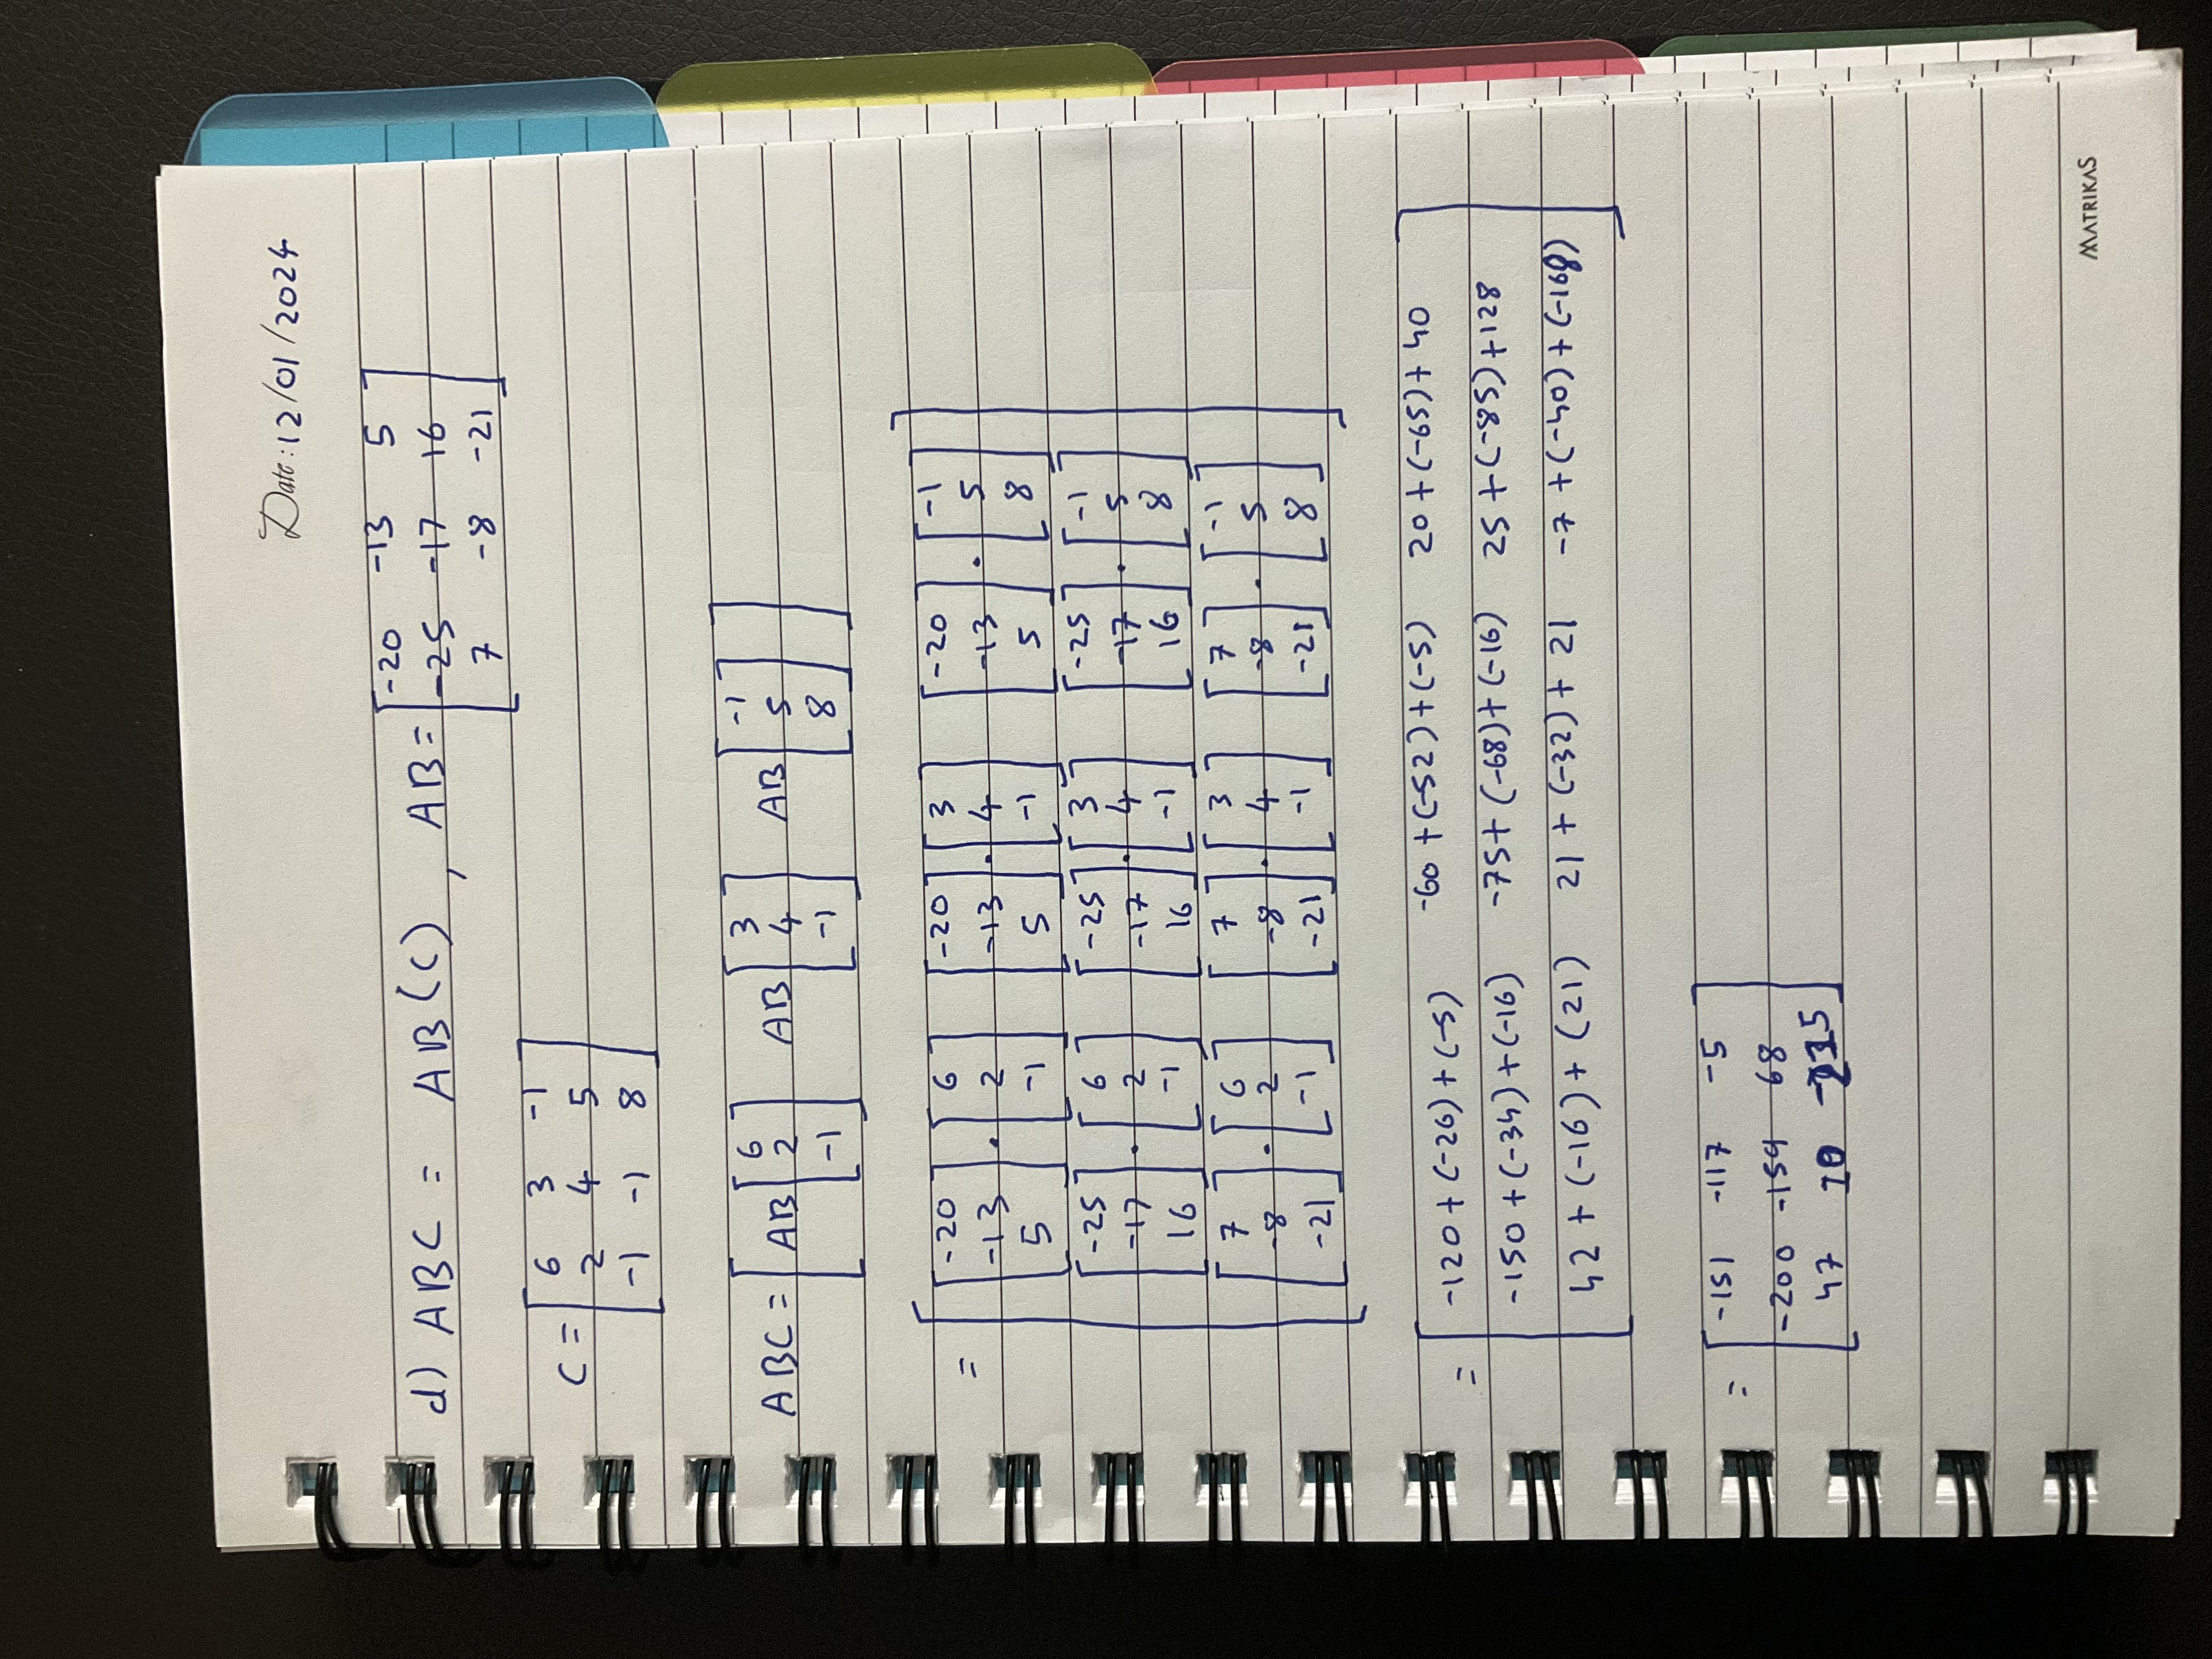 Date: 12/01/2024
d) ABC = AB(C) , AB = [-20 -13 5
-25 -17 16
7 -8 -21]
C = [6 3 -1
2 4 5
-1 -1 8]
ABC = [AB[6 2 -1] AB[3 4 -1] AB[-1 5 8]]
= [[-20 -13 5] . [6 2 -1] [-20 -13 5] . [3 4 -1] [-20 -13 5] . [-1 5 8]
[-25 -17 16] . [6 2 -1] [-25 -17 16] . [3 4 -1] [-25 -17 16] . [-1 5 8]
[7 -8 -21] . [6 2 -1] [7 -8 -21] . [3 4 -1] [7 -8 -21] . [-1 5 8]]
= [-120 + (-26) + (-5) -60 + (-52) + (-5) 20 + (-65) + 40
-150 + (-34) + (-16) -75 + (-68) + (-16) 25 + (-85) + 128
42 + (-16) + (21) 21 + (-32) + 21 -7 + (-40) + (-168)]
= [-151 -117 -5
-200 -159 68
47 10 -215]
MATRIKAS